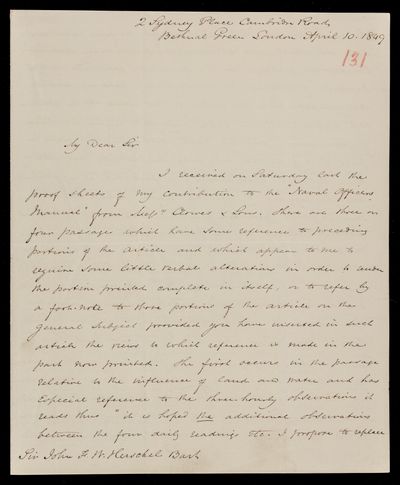 2 Sydney Place Cambridge Road
Bethnal Green London April 10. 1849
131
My Dear Sir
I received on Saturday last the
proof sheets of my contribution to the "Naval Officers
Manual" from Messrs Clowes & Sons. There are three or
four passages which have some reference to preceding
portions of the article and which appear to me to
require some little verbal alteration in order to render
the portion printed complete in itself, or to refer by
a foot-note to those portions of the article on the
general subject provided you have inserted in such
article the views to which reference is made in the
part now printed. The first occurs in the passage
relative to the influence of land and water and has
especial reference to the three-hourly observations it
reads thus "it is hoped the additional observations
between the four daily readings etc. I propose to replace
Sir John F. W. Herschel Bart